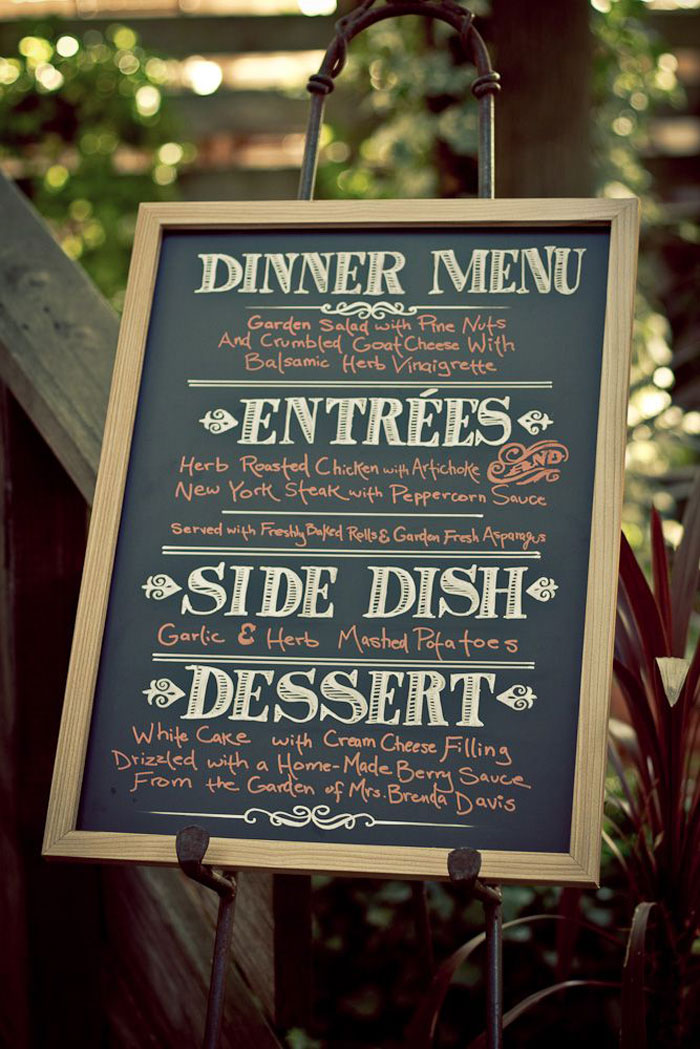 DINNER MENU
Garden Salad with Pine Nuts
And Crumbled Goat Cheese With
Balsamic Herb Vinaigrette
ENTRÉES
Herb Roasted Chicken with Artichoke AND
New York Steak with Peppercorn Sauce
Served with Freshly Baked Rolls & Garden Fresh Asparagus
SIDE DISH
Garlic & Herb Mashed Potatoes
DESSERT
White Cake with Cream Cheese Filling
Drizzled with a Home-Made Berry Sauce
From the Garden of Mrs. Brenda Davis